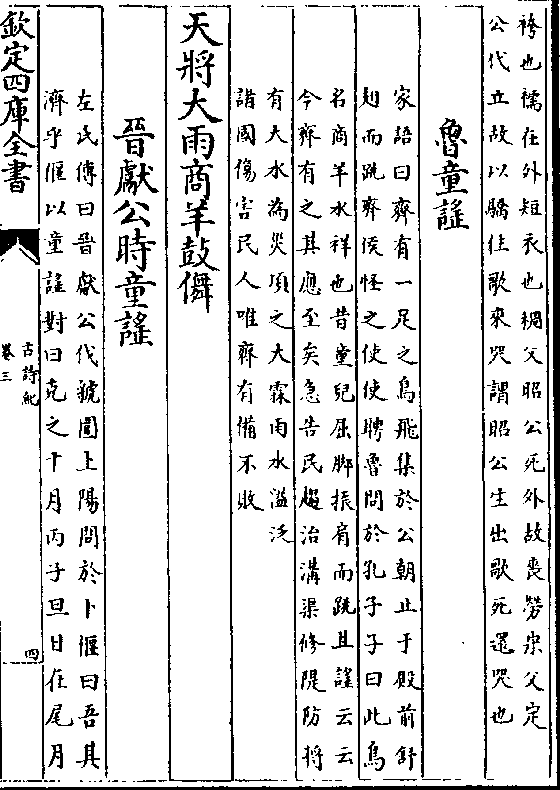 袴也襦在外短衣也裯父昭公死外故喪勞宋父定
公代立故以驕往歌來哭謂昭公生出歌死還哭也
魯童謠
家語曰齊有一足之鳥飛集於公朝止于殿前舒
翅而跳齊侯怪之使使聘魯問於孔子子曰此鳥
名商羊水祥也昔童兒屈脚振肩而跳且謠云云
今齊有之其應至矣急告民趨治溝渠修隄防將
有大水為災頃之大霖雨水溢泛
諸國傷害民人唯齊有備不敗
天將大雨商羊鼓儛
晉獻公時童謠
左氏傳曰晉獻公伐虢圍上陽問於卜偃曰吾其
濟乎偃以童謠對曰克之十月丙子旦日在尾月
欽定四庫全書
古詩紀
卷三
四